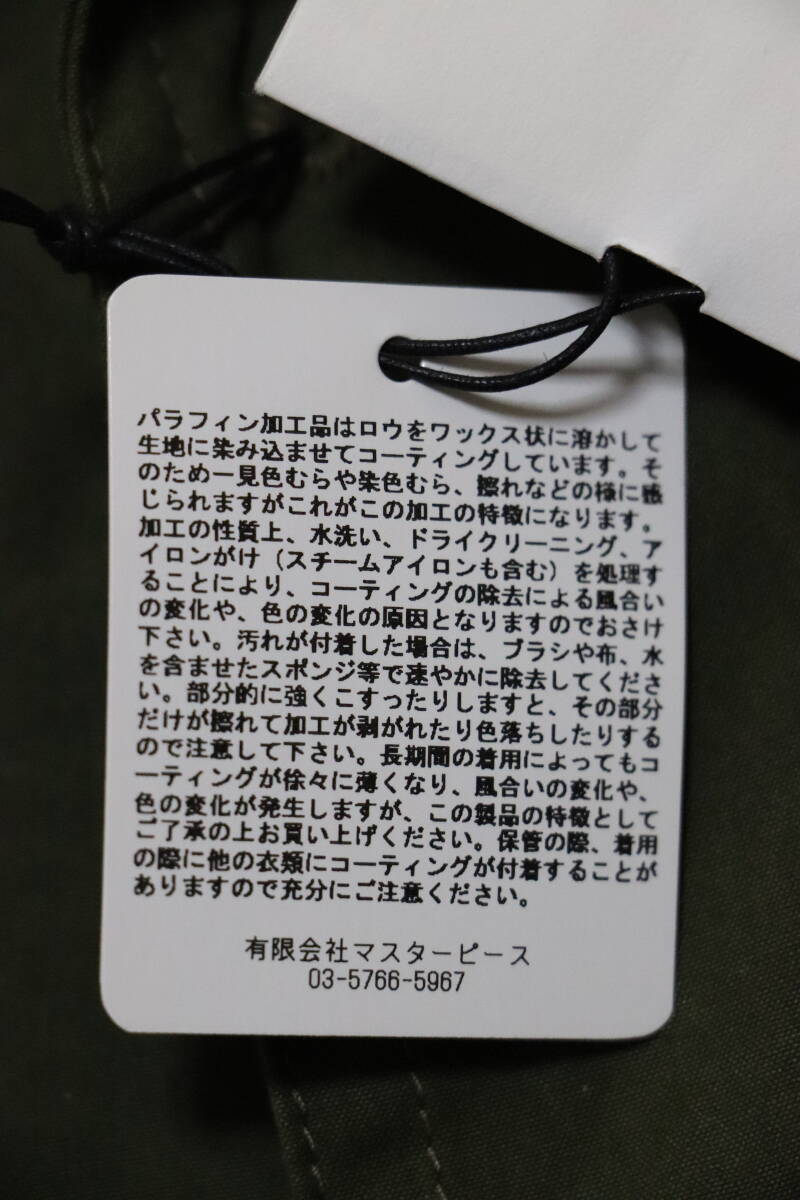 パラフィン加工品はロウをワックス状に溶かして
生地に染み込ませてコーティングしています。そ
のため一見色むらや染色むら、擦れなどの様に感
じられますがこれがこの加工の特徴になります。
加工の性質上、水洗い、ドライクリーニング、ア
イロンがけ（スチームアイロンも含む）を処理す
ることにより、コーティングの除去による風合い
の変化や、色の変化の原因となりますのでおさけ
下さい。汚れが付着した場合は、ブラシや布、水
を含ませたスポンジ等で速やかに除去してくださ
い。部分的に強くこすったりしますと、その部分
だけが擦れて加工が剥がれたり色落ちしたりする
ので注意して下さい。長期間の着用によってもコ
ーティングが徐々に薄くなり、風合いの変化や、
色の変化が発生しますが、この製品の特徴として
ご了承の上お買い上げください。保管の際、着用
の際に他の衣類にコーティングが付着することが
ありますので充分にご注意ください。
有限会社マスターピース
03-5766-5967